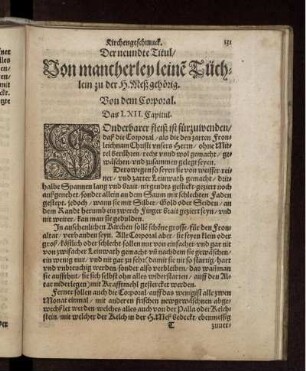 Kirchengeschmuck. 131
Der neundte Titul/
Von mancherley leinē Tüch-
lein zu der H. Meß gehörig.
Von dem Corporal.
Das LXII. Capitul.
SOnderbarer fleiß ist fürzuwenden/
daß die Corporal/ als die den zarten Fron-
leichnam Christi unsers Herrn/ ohne Mit-
tel berühren/ recht und wol gemacht/ ge-
wäschen/ und zusammen gelegt seyen.
Derowegen so seyen sie von weisser rai-
ner/ und zarter Leinwath gemacht/ drit-
halbe Spannen lang und brait/ nirgendts gestickt/ gezieret noch
auß genehet/ sonder allein an dem Saum mit schlechtem Faden
gesteppt/ jedoch/ wann sie mit Silber/ Gold oder Seiden/ an
dem Randt herumb ein zwerch Finger brait geziert seyn/ und
nit weiter/ kan man sie gedulden.
In ansehenlichen Kirchen solle schöne grosse/ für den Fron-
altar/ vorhanden seyn. Alle Corporal aber/ sie seyen klein oder
groß/ köstlich oder schlecht/ sollen nur von einfacher/ und gar nit
von zwifacher Leinwath gemacht/ und nachdem sie gewäschen/ ein
wenig nur/ und nit gar zu sehr/ damit sie nit so starrig/ hart
und unbreuchig werden/ sonder also verbleiben/ das
auffthun/ sie sich selbst ohn alles widerstarren/ auff den Al-
tar niderlegen) mit Krafftmehl gestercket werden.
Ferner sollen auch die Corporal/ auff das wenigist alle zwen
Monat einmal/ mit anderen frischen newgewäschnen abge-
wechßlet werden/ welches alles auch von der Palla oder Kelch
stein/ mit welcher der Kelch in der H. Meß bedeckt/ ebenmessig
T zuuer/